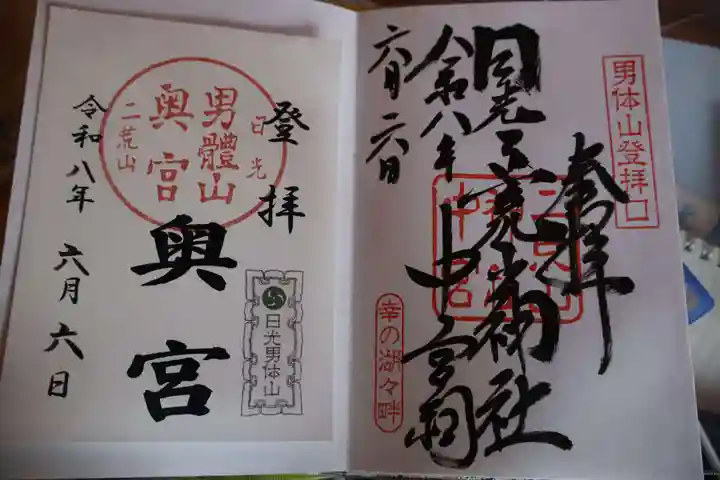 男体山登拝口
奉拝
日光二荒山神社
中宮祠
令和八年
六月六日
幸の湖々畔
二荒山
中宮
登拝
日光
男體山
奥宮
二荒山
奥宮
日光男体山
令和八年 六月六日